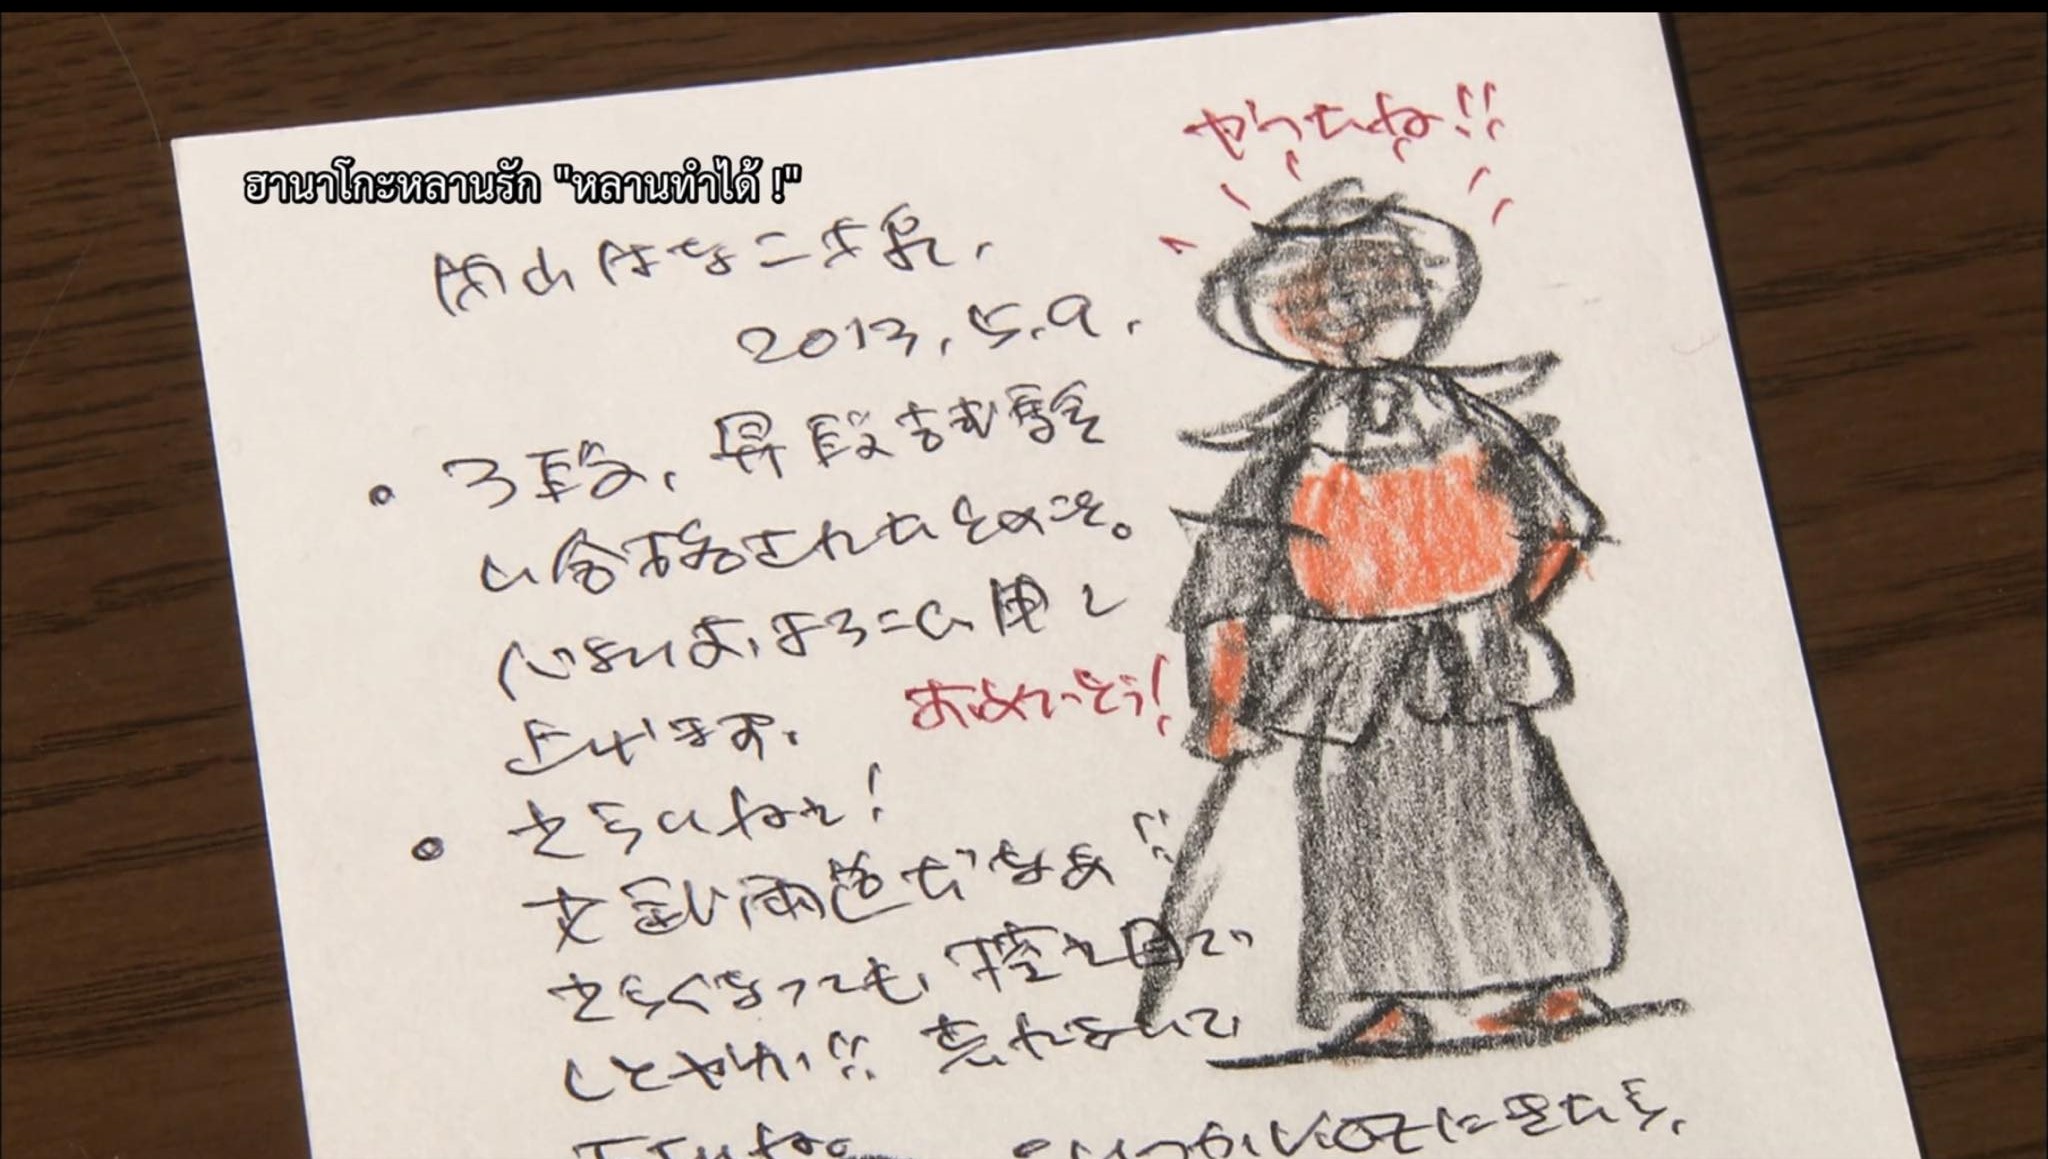 やったね!!
ฮานาโกะหลานรัก "หลานทำได้ !"
はな二才
2013.5.9.
• 3段、昇段試験
に合格されたとのこと。
心より、よろこび申し
おめでとう!
上げます。
• えらいねえ!
文武両道だなあ!!
えらくなっても、控え目で
しとやか!! 忘れないで